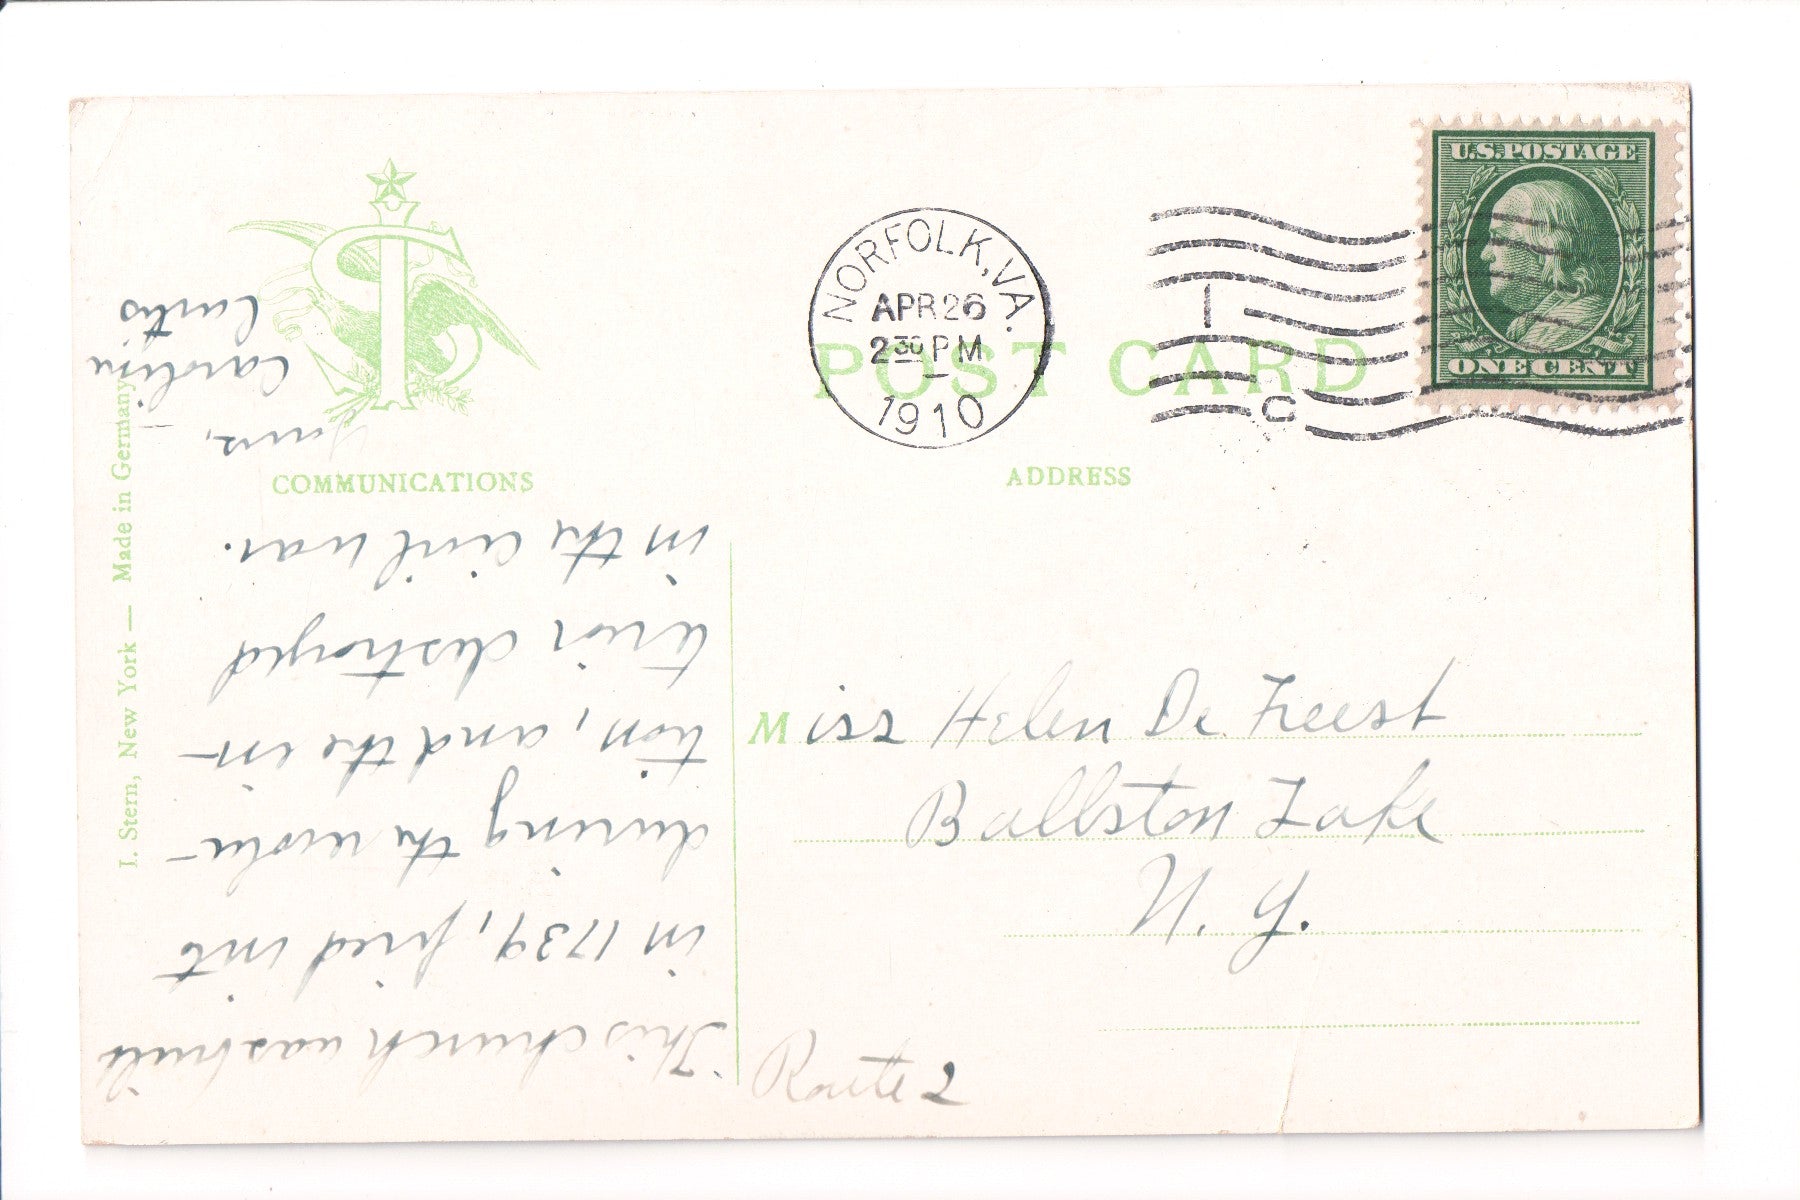 U.S. POSTAGE
ONE CENT
NORFOLK, VA.
APR 26
2 30 PM
1910
1
C
POST CARD
COMMUNICATIONS
ADDRESS
I. Stern, New York — Made in Germany
This church was built
in 1739, fired into
during the revolu-
tion, and the in-
terior destroyed
in the civil war.
Yours,
Carolin
Curtis
Miss Helen De Freest
Ballston Lake
N. Y.
Route 2